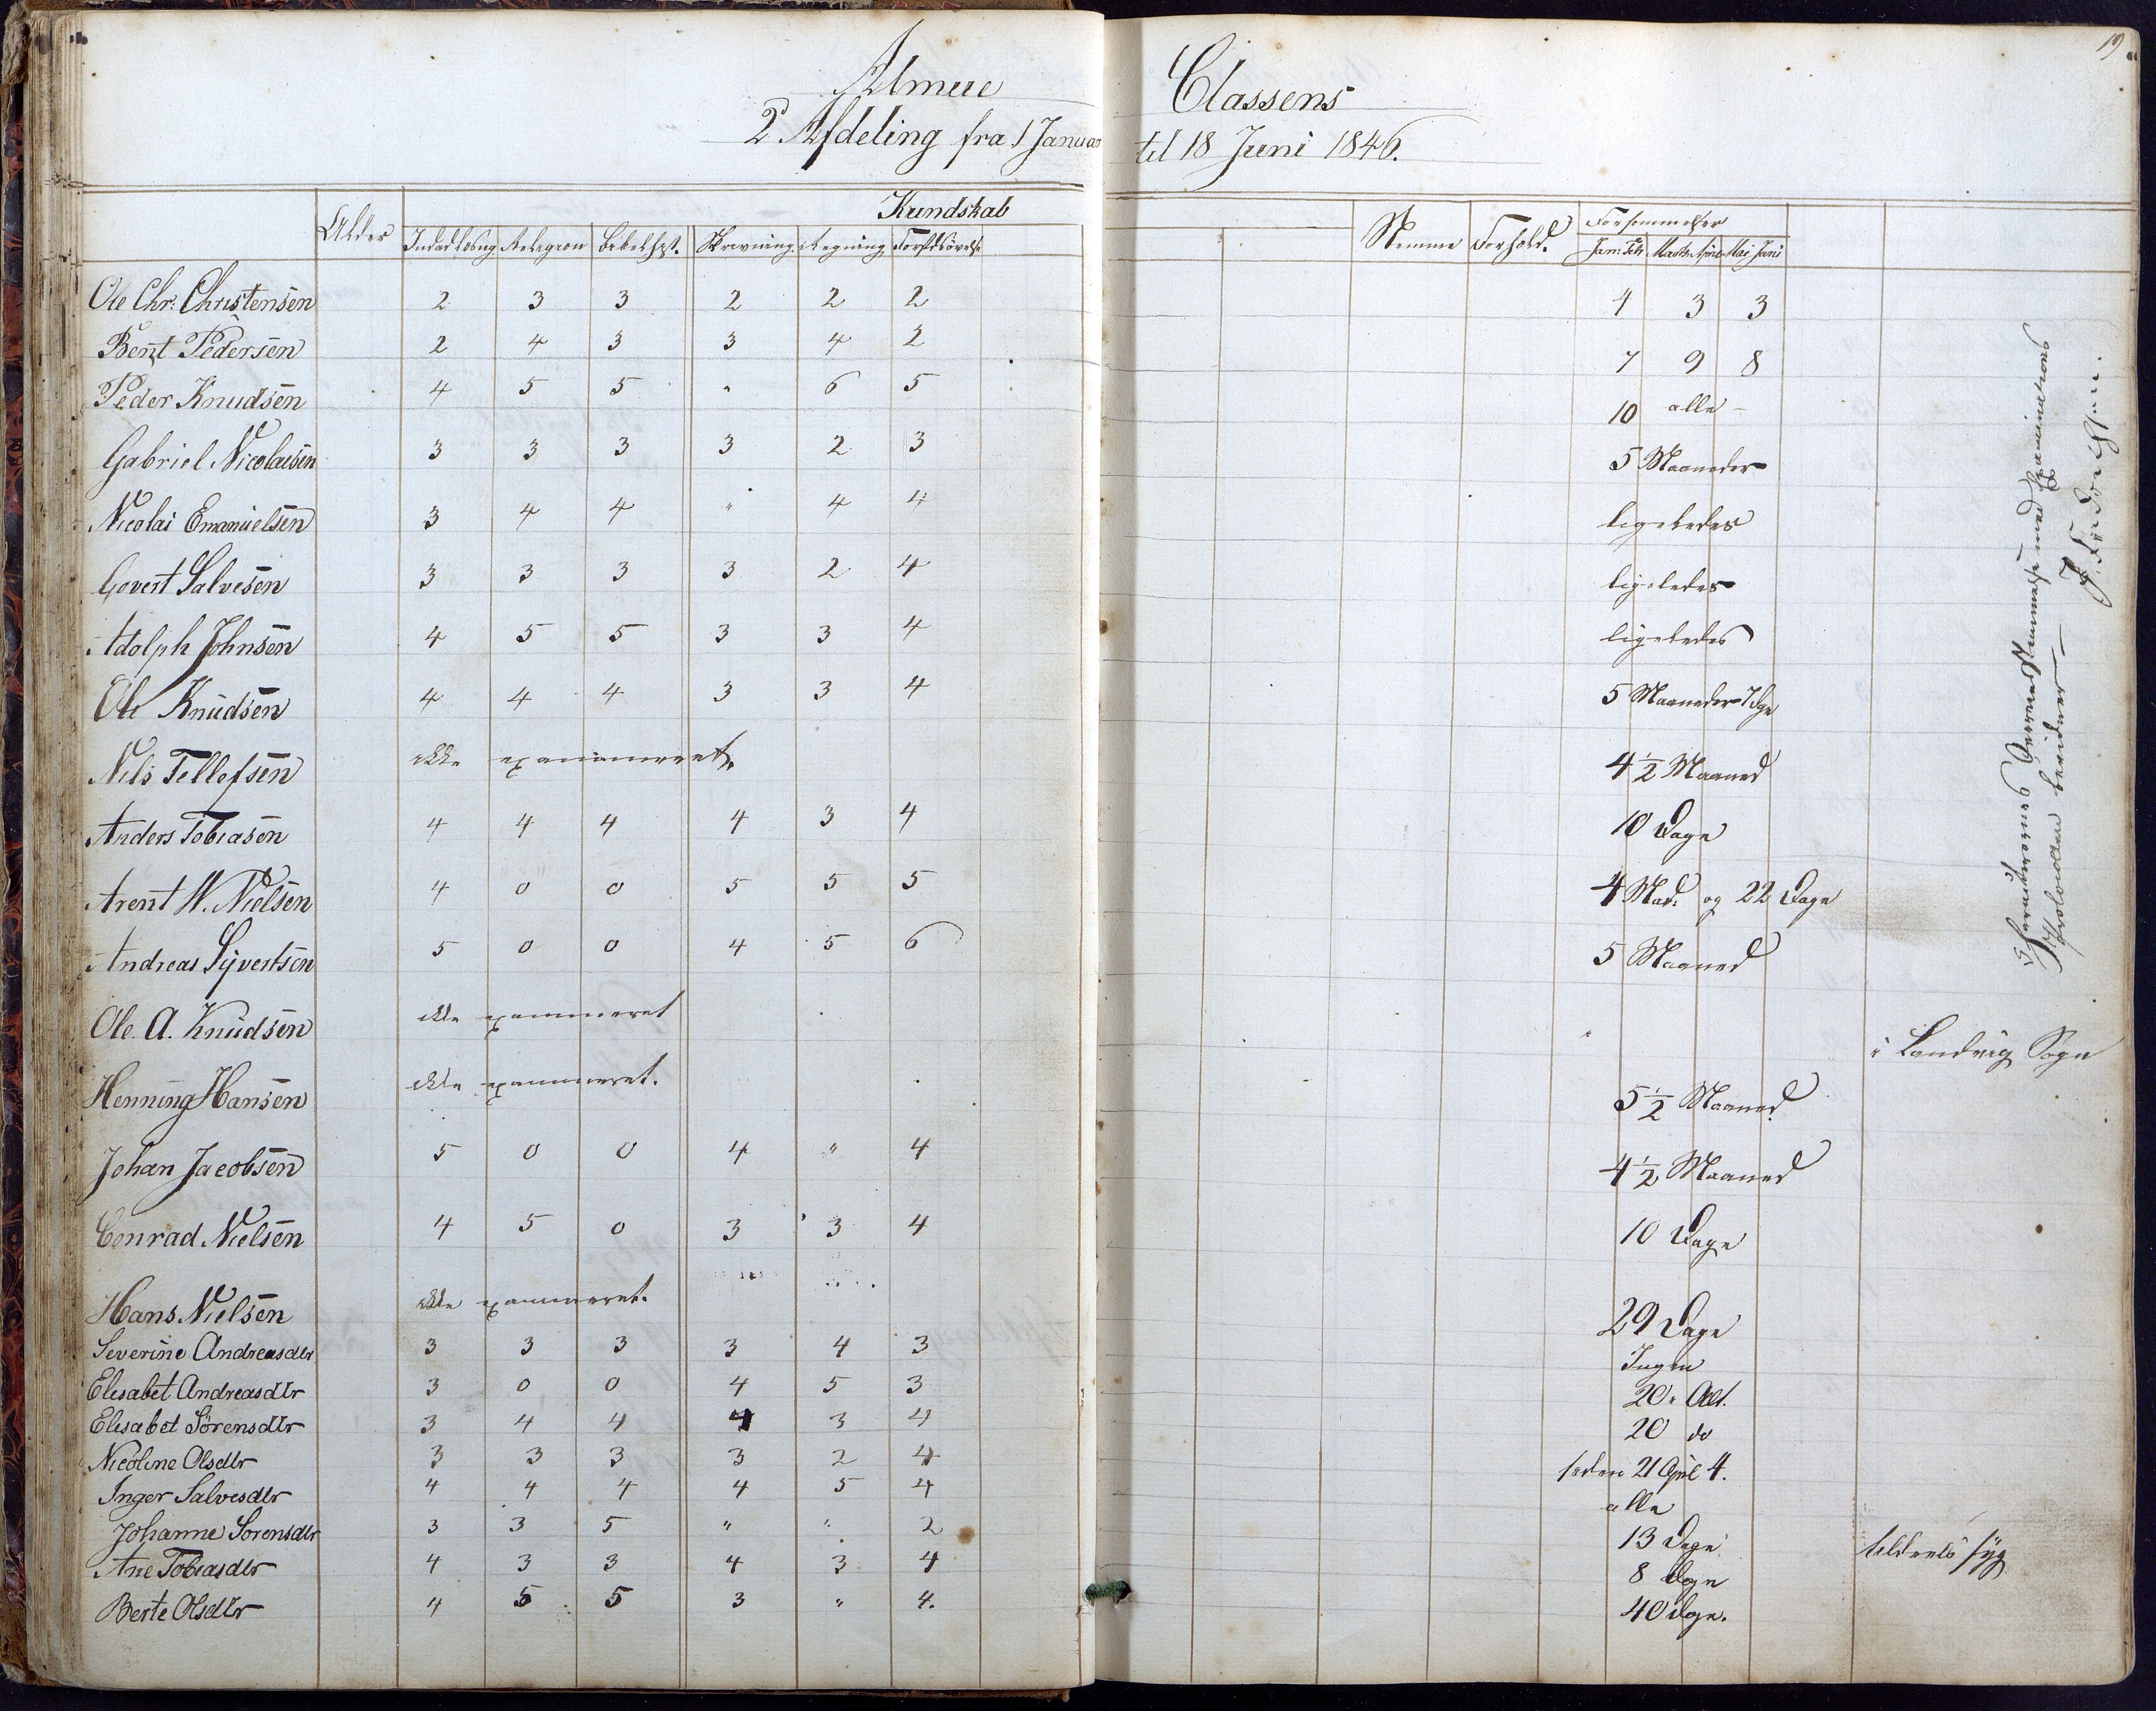 19
Almue Classens
2 Afdeling fra 1 Januar til 18 Juni 1846.
Kundskab
Alder Indadlæsng Relegion bibelhist. Skrivning. Regning Forstdsövelse Stemme Forhold. Forsömmelser
Jan: Feb Marts April Mai Juni
Ole Chr. Christensen 2 3 3 2 2 2 4 3 3
Bent Pedersen 2 4 3 3 4 2 7 9 8
Peder Knudsen 4 5 5 " 6 5 10 alle -
Gabriel Nicolaisen 3 3 3 3 2 3 5 Maaneder
Nicolai Emanuelsen 3 4 4 " 4 4 ligeledes
Govert Salvesen 3 3 3 3 2 4 ligeledes
Adolph Johnsen 4 5 5 3 3 4 ligeledes
Ole Knudsen 4 4 4 3 3 4 5 Maaneder 7 Dge
Nils Tellefsen ikke examineret. 4 1/2 Maaned
Anders Tobiasen 4 4 4 4 3 4 10 Dage
Arent W. Nielsen 4 0 0 5 5 5 4 Mad. og 22 Dage
Andreas Syvertsen 5 0 0 4 5 6 5 Maaned
Ole A. Knudsen ikke examineret " i Landvig Sogn
Henning Hansen ikke examineret. 5 1/2 Maaned
Johan Jacobsen 5 0 0 4 " 4 4 1/2 Maaned
Conrad Nielsen 4 5 0 3 3 4 10 Dage
Hans Nielsen ikke examineret. 29 Dage
Severine Andreasdtr 3 3 3 3 4 3 Ingen
Elisabet Andreasdtr 3 0 0 4 5 3 20. Alt.
Elisabet Sörensdtr 3 4 4 4 3 4 20 do
Nicoline Olsdtr 3 3 3 3 2 4 siden 21 April 4.
Inger Salvesdtr 4 4 4 4 5 4 alle
Johanne Sorensdtr 3 3 5 " " 2 13 Dage
Ane Tobiasdtr 4 3 3 4 3 4 8 Dage tildeels syg
Berte Olsdtr 4 5 5 3 " 4. 40 Dage.
Characterernes Overensstemmelse med Examinations
Protocollen bevidner —